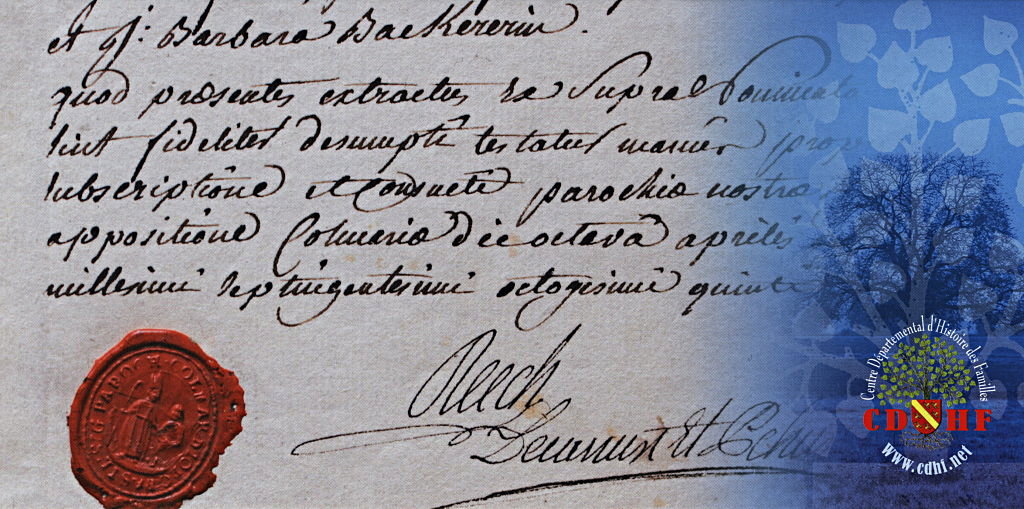 et q: Barbara Backererin.
quod præsentes extractus ex Supra
sint fideliter desumpti testatur manûs
subscriptione et consuetâ parochiæ nostræ
appositione Colmariæ die octavâ aprilis
millesimi septingentesimi octogesimi quinti
Reech
Decanus et
SIG PAROCH COLMAR
Centre Départemental d'Histoire des Familles
CDHF
www.cdhf.net